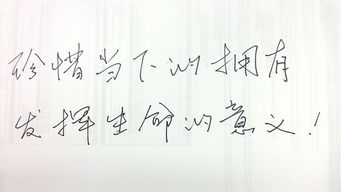 珍惜当下的拥有
发挥生命的意义!